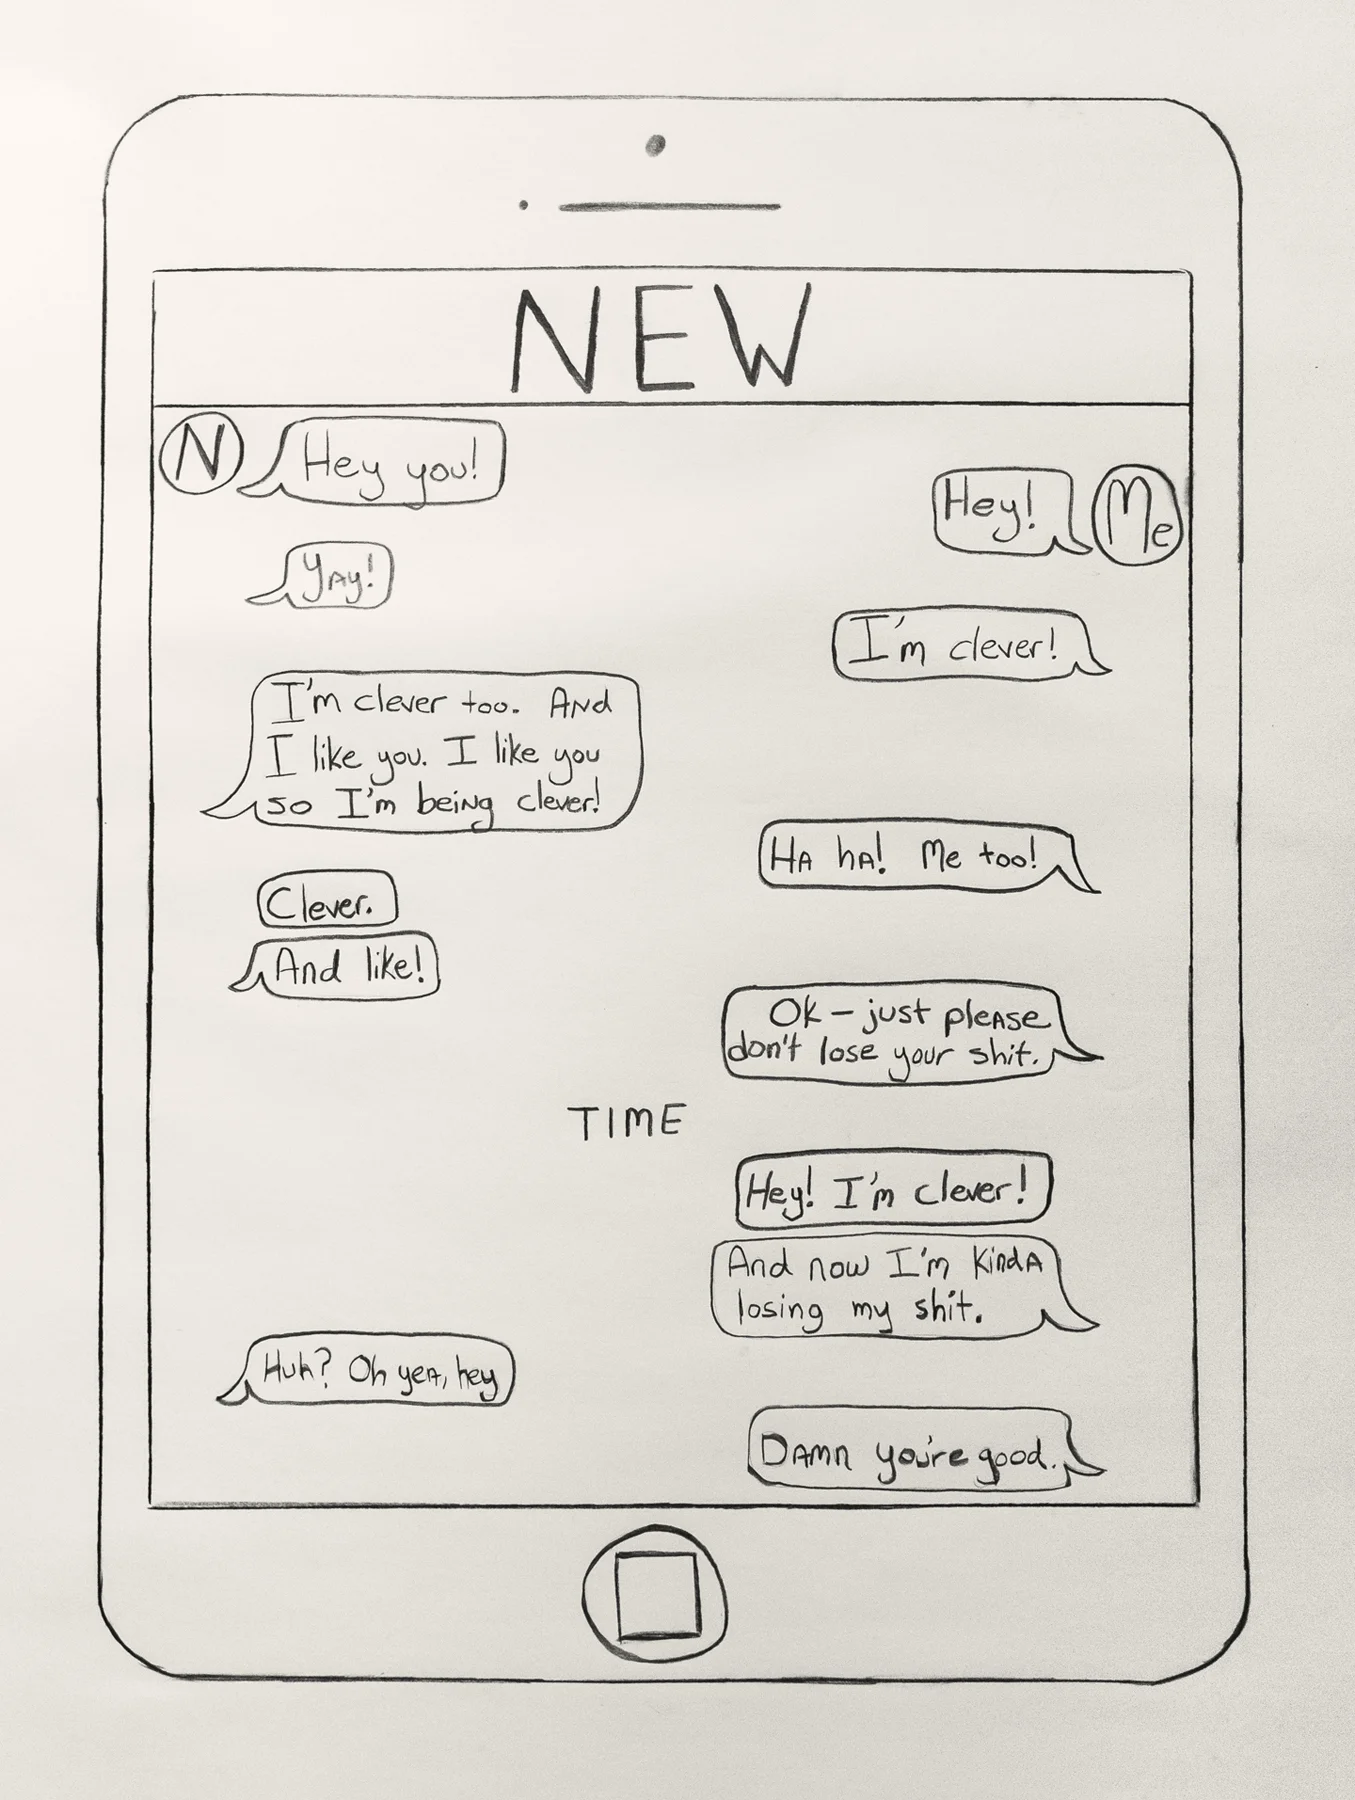 NEW
N
Hey you!
Hey!
Me
YAy!
I'm clever!
I'm clever too. ANd
I like you. I like you
so I'm being clever!
HA hA! Me too!
Clever.
And like!
Ok – just pleAse
don't lose your shit.
TIME
Hey! I'm clever!
And now I'm KindA
losing my shit.
Huh? Oh yeA, hey
DAmn you're good.